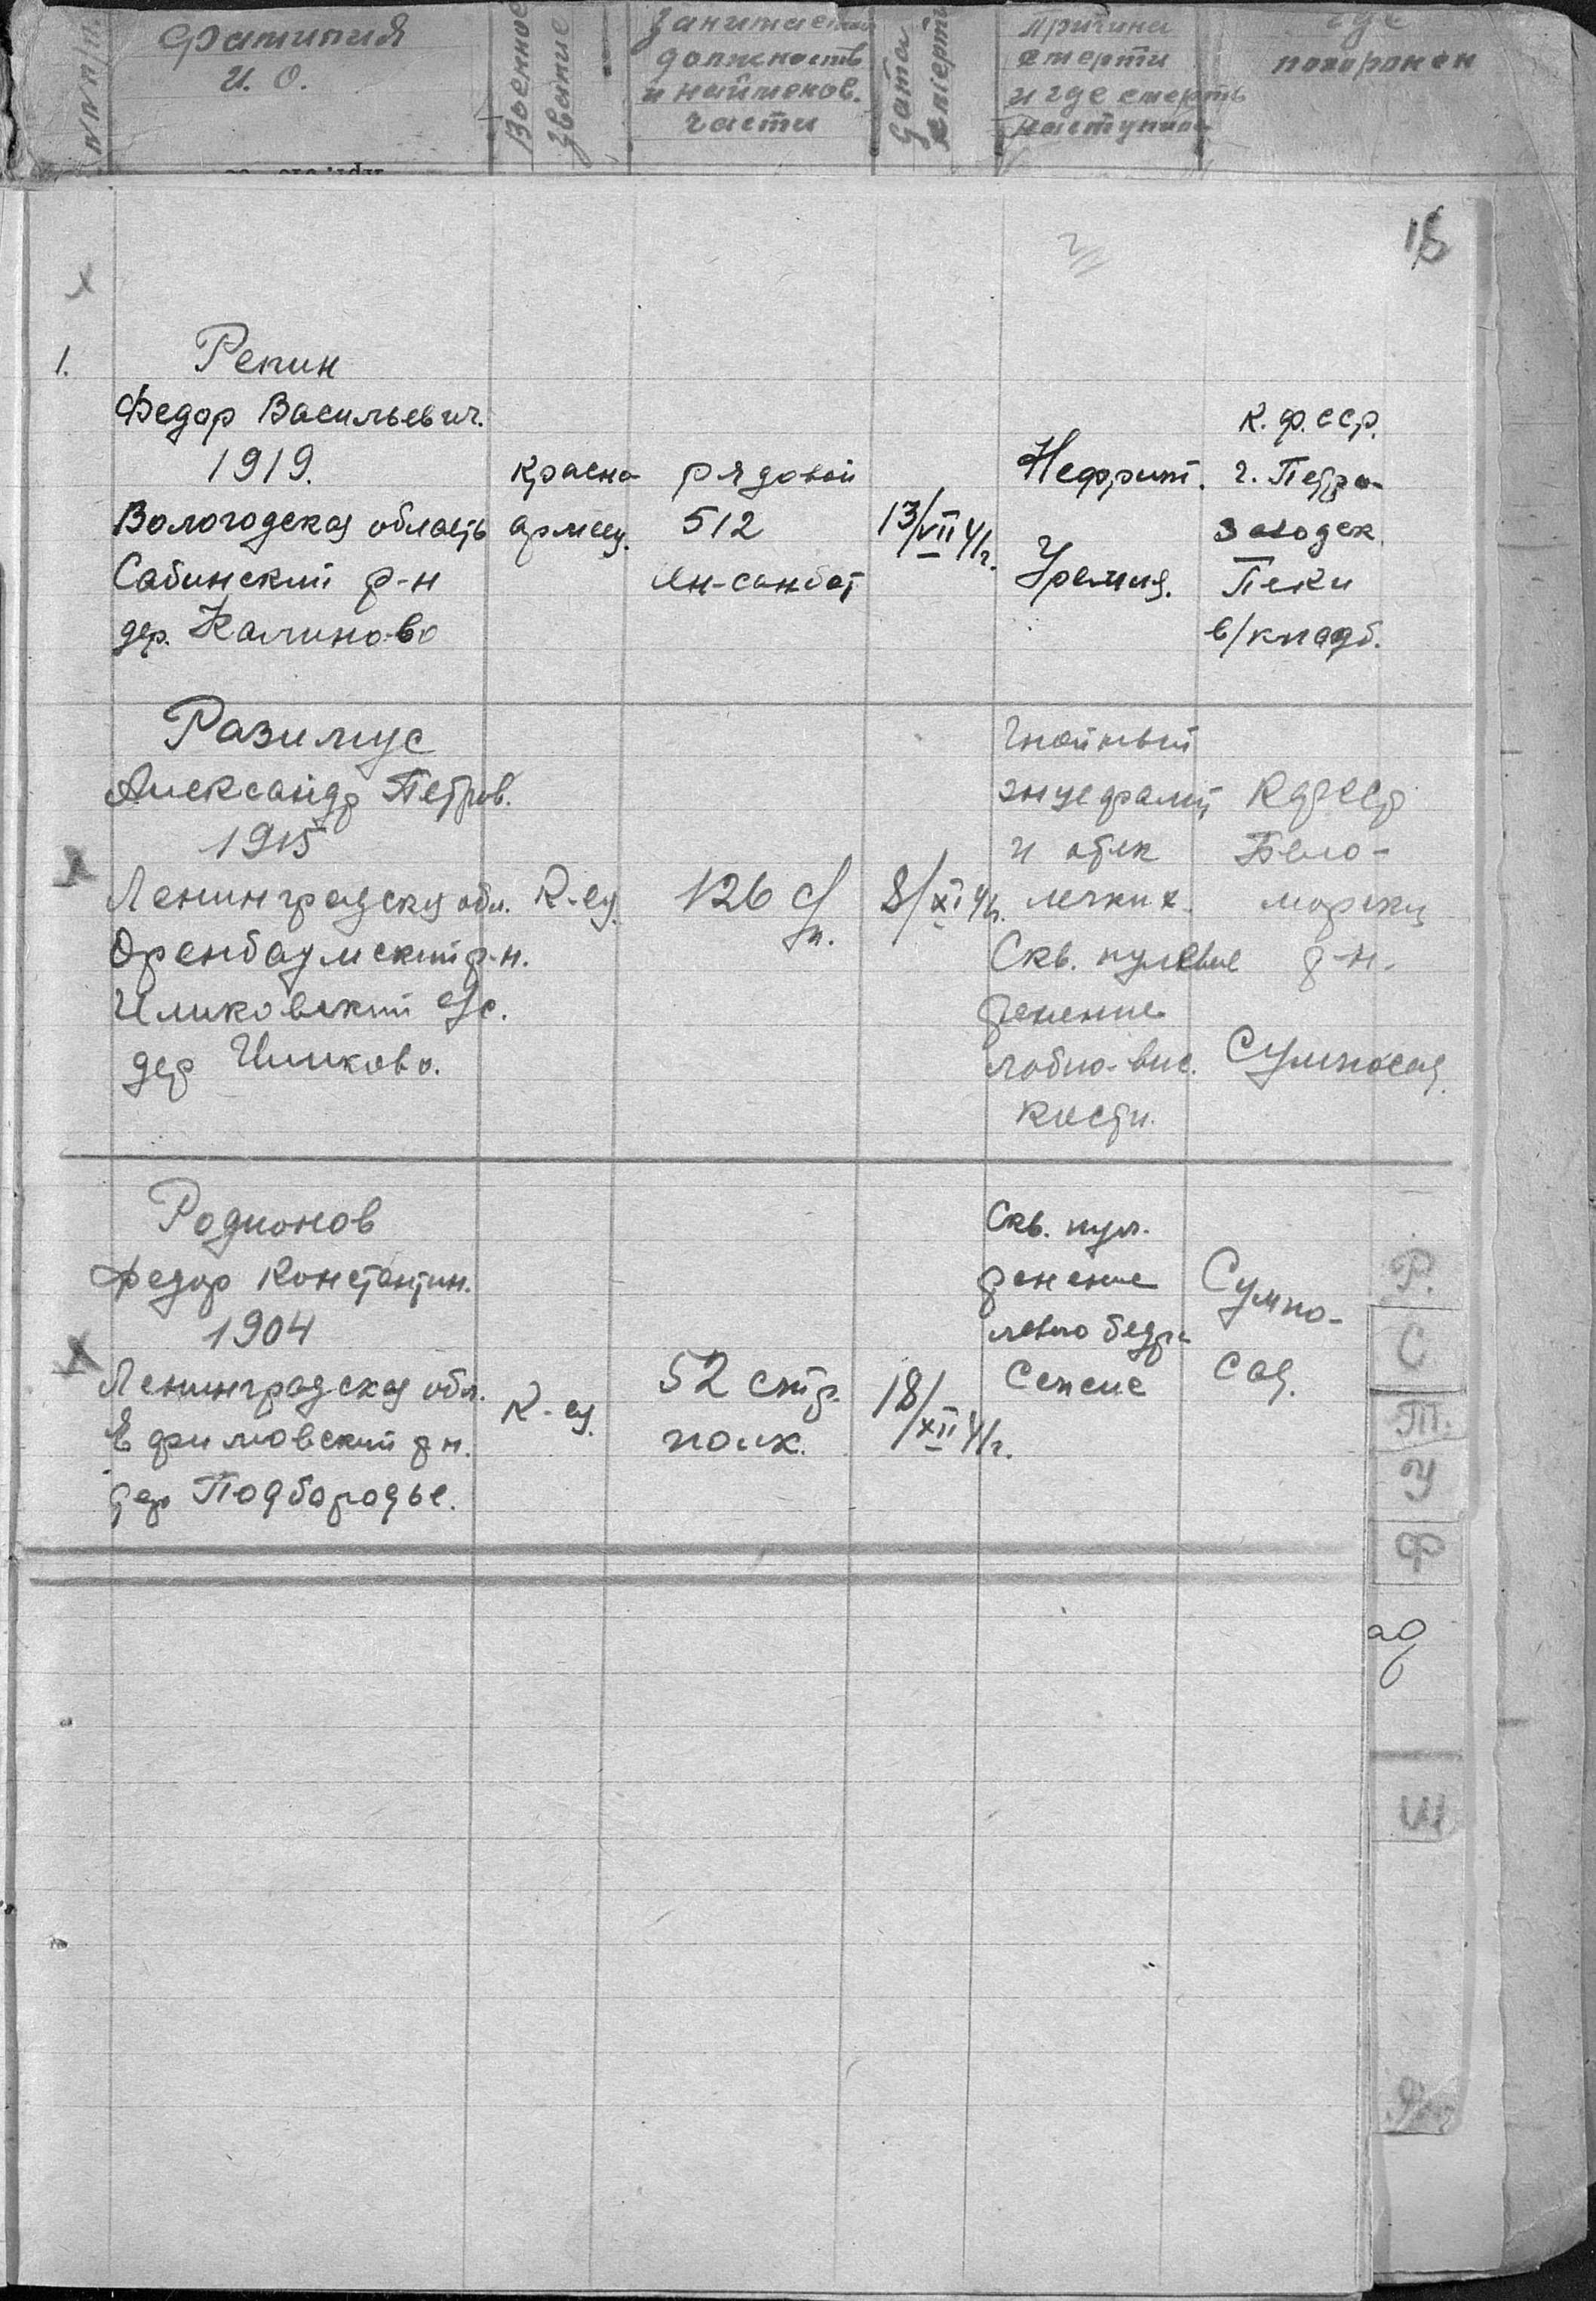 №№ п/п
Фамилия
И. О.
Военное
звание
Занимаемая
должность
и наименов.
части
Дата
смерти
Причина
смерти
и где смерть
наступила
где
похоронен
15
1.
Репин
Федор Васильевич.
1919.
Вологодская область
Сабинский р-н
дер. Калиново
красно
армеец.
рядовой
512
сан-бат
13/VII 41г.
Нефрит.
Уремия.
К. Ф. ССР.
г. Петро-
заводск.
Пески
в/кладб.
Разимус
Александр Петров.
1915
Ленинградская обл.
Оренбаумский р-н.
Иликовский с/с.
дер Иликово.
К-ец.
126 с/п.
8/XI 41г.
Гнойный
энцефалит
и отек
легких.
Скв. пулевые
ранение
лобно-вис.
кости.
КФССР
Бело-
морский
р-н.
Сумпосад.
Родионов
Федор Константин.
1904
Ленинградская обл.
Ефимовский р-н.
дер Подбородье.
К-ец.
52 стр.
полк.
18/XII 41г.
Скв. пул.
ранение
левого бедра
Сепсис
Сумпо-
сад.
Р.
С
Т.
У
Ф
ад
Ш